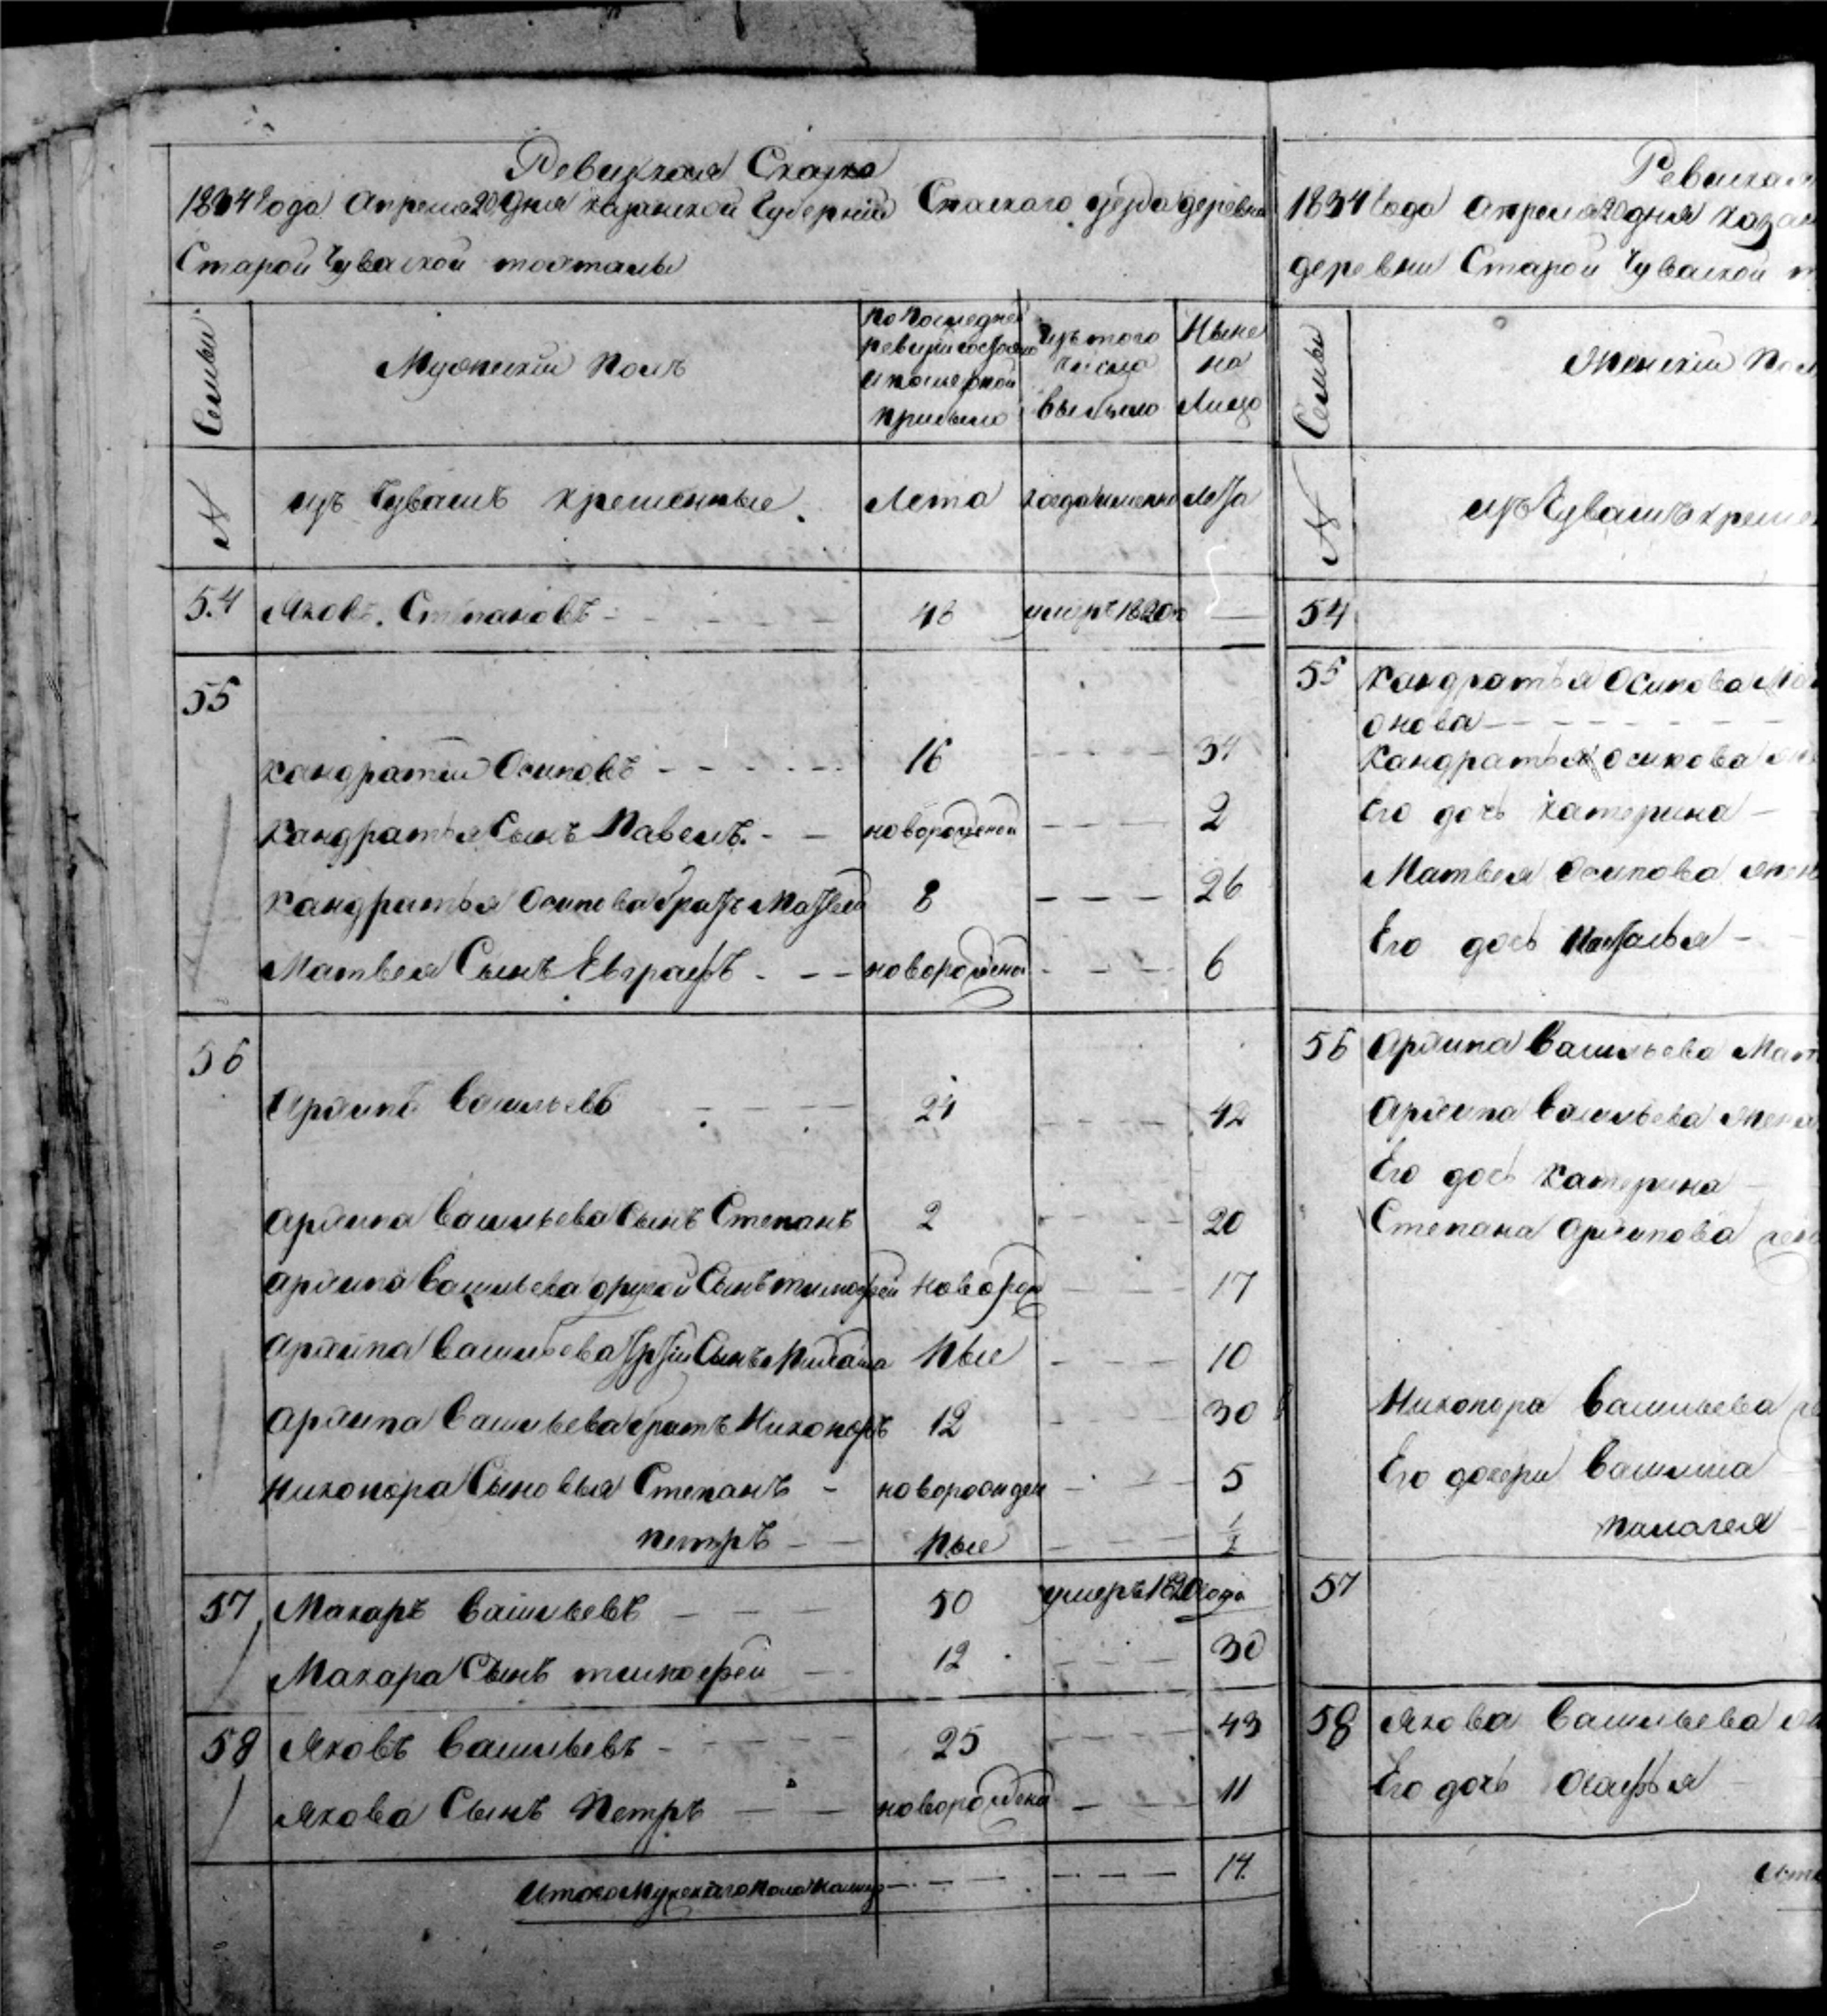 Ревизская Сказка
1834 Года Апреля 20 Дня Казанской Губернии Спаского уезда деревни
Старой Чуваской
Семьи
Мужеский Полъ
По последней ревизии состояло и после оной прибыло
Изъ того числа выбыло
Ныне на Лицо
№
изъ Чувашъ крещенные.
Лета
когда именно
Лета
54 Яковъ Степановъ - - - 48 умеръ 1820го —
55
Кандратий Осиповъ - - - 16 - - - 34
Кандратья Сынъ Павелъ - - новорожденой - - - 2
Кандратья Осипова братъ Матвей 8 - - - 26
Матвея Сынъ Евграфъ - - - новорожденой - - - 6
56
Архипъ Васильевъ - - - 24 - - - 42
Архипа Васильева Сынъ Степанъ 2 - - - 20
Архипа Васильева другой Сынъ тимофей Новорож - - - 17
Архипа Васильева третий Сынъ 10
Архипа Васильева братъ Никопоръ 12 - - - 30
Никопора Сыновья Степанъ - новорожден - - - 5
петръ - - ные - - - 1/2
57 Макаръ Васильевъ - - - 50 умеръ 1820 года
Макара Сынъ тимофей - - 12 - - - 30
58 Яковъ Васильевъ - - - 25 - - - 43
Якова Сынъ Петръ - - новорождены - - - 11
Итого Мужескаго Пола налицо - - - 14.
Ревиская
1834 Года Апреля 20 дня Казан
деревни Старой Чуваской т
Семьи
Женский Пол
№
изъ Чувашъ креще
54
55 Кандратья Осипова Ма
онова - - -
Кандратья Осипова же
Его дочь Катерина -
Матвея Осипова жен
Его дочь Наталья -
56 Архипа Васильева Мат
Архипа Васильева жена
Его дочь Катерина
Степана Архипова жен
Никопора Васильева
Его дочери Василиса
Палагея
57
58 Якова Васильева же
Его дочь Агафья
Ито